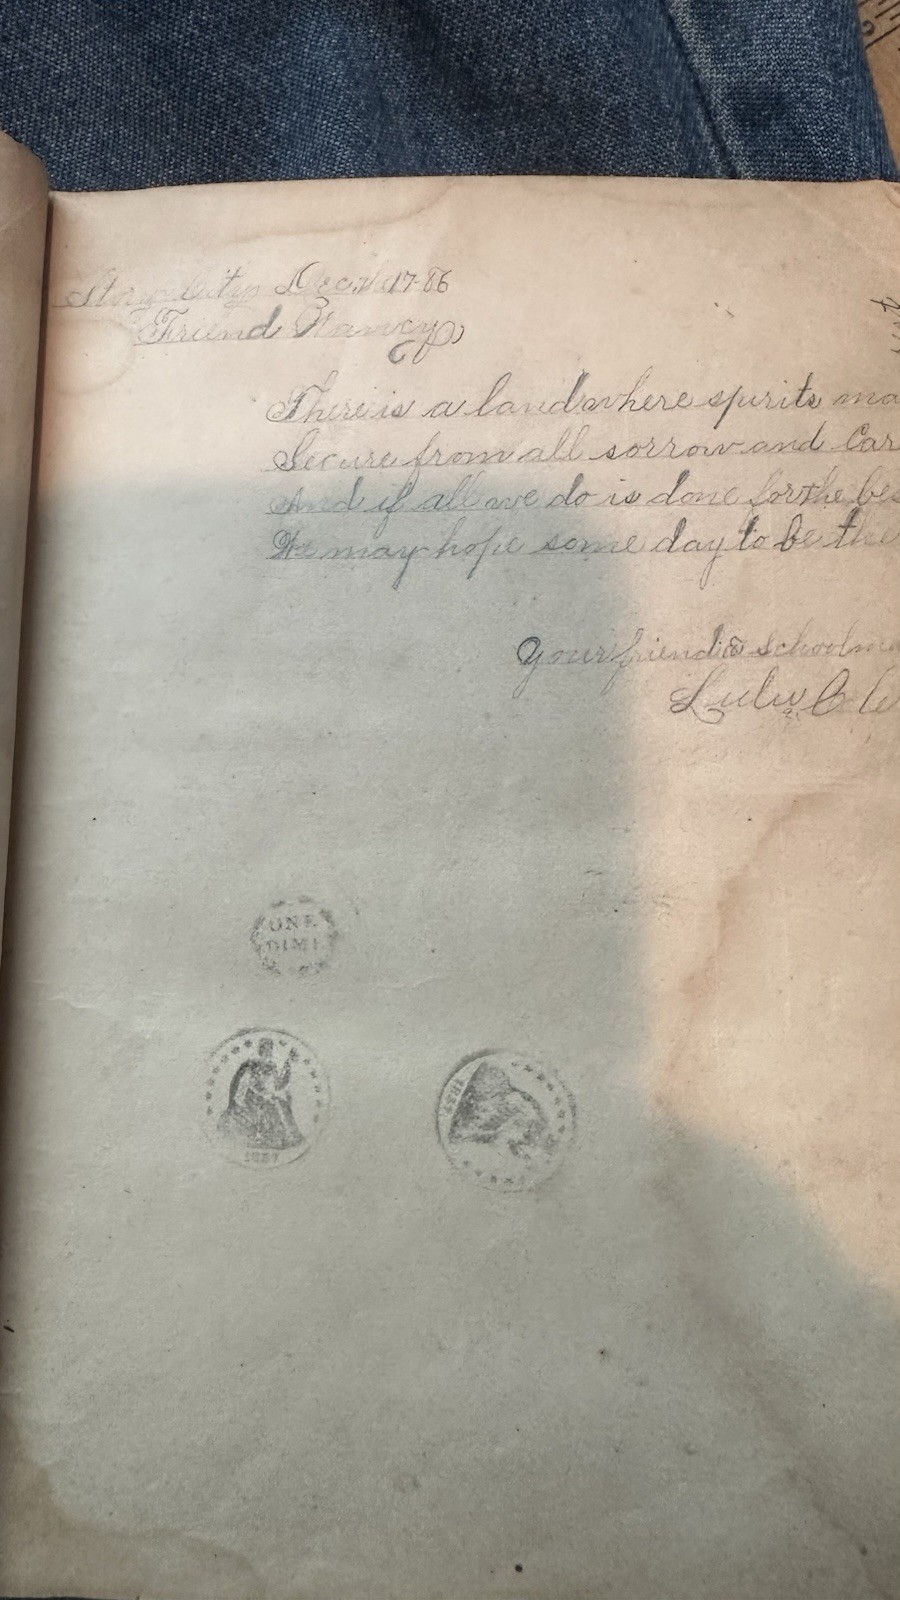 Story City Dec, 17-86
Friend Nancy
There is a land where spirits
Secure from all sorrow and
And if all we do is done for the
We may hope some day to be
Your friend &
Lulu C
ONE
DIME
1857